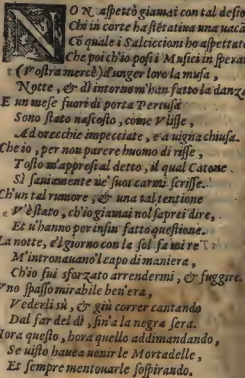 NON aspettò giamai con tal desio
Chi in corte ha stētativa una vacā
Cō quale i Salciccioni ho aspettato
Che poi ch'io posi i Musici in speran
(Vostra mercè) d'unger loro la musa,
Notte, & dì intorno m'han fatto la danza
E un mese fuori di porta Pertusa
Sono stato nascosto, come Vlisse,
Ad orecchie impecciate, e a vigna chiusa.
Che io, per non parere huomo di risse,
Tosto m'appresi al detto, il qual Catone
Sì saviamente ne' suoi carmi scrisse.
Ch'un tal rumore, & una tal tentione
V'è stato, ch'io giamai nol saprei dire,
Et u'hanno per insin fatto questione.
La notte, e'l giorno con la sol fa mi re
M'intronavano'l capo di maniera,
Ch'io fui sforzato arrendermi, & fuggire.
no spasso mirabile ben'era,
Vederli sù, & giù correr cantando
Dal far del dì, fin'a la negra sera.
Hora questo, hora quello addimandando,
Se visto havea venir le Mortadelle,
Et sempre mentovarle sospirando.